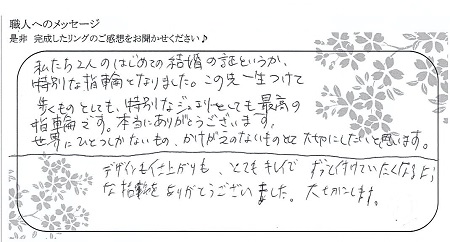 職人へのメッセージ
是非 完成したリングのご感想をお聞かせください♪
私たち2人のはじめての結婚の証というか、
特別な指輪となりました。この先一生つけて
歩くものとしても、特別なジュエリーとしても最高の
指輪です。本当にありがとうございます。
世界にひとつしかないもの、かけがえのないものとして大切にしたいと思います。
デザインも仕上がりも、とてもキレイで ずっと付けていたくなるよう
な指輪をありがとうございました。大切にします。